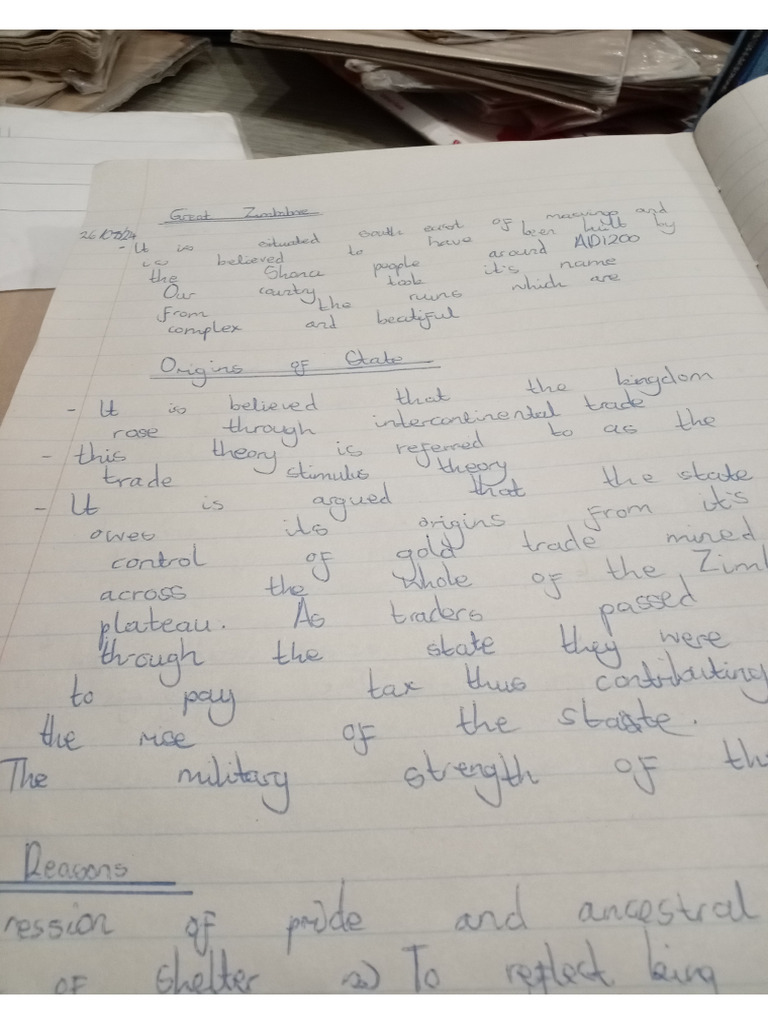 Great Zimbabwe
26/08/24
- It is situated south east of masvingo and
is believed to have been built by
the Shona people around AD1200
Our country took it's name
from the ruins which are
complex and beautiful
Origins of State
- It is believed that the kingdom
rose through intercontinental trade
- this theory is referred to as the
trade stimulus theory
- It is argued that the state
owes its origins from it's
control of gold trade mined
across the whole of the Zim
plateau. As traders passed
through the state they were
to pay tax thus contributing
the rise of the state.
The military strength of th
Reasons
ression of pride and ancestral
of shelter 2) To reflect being